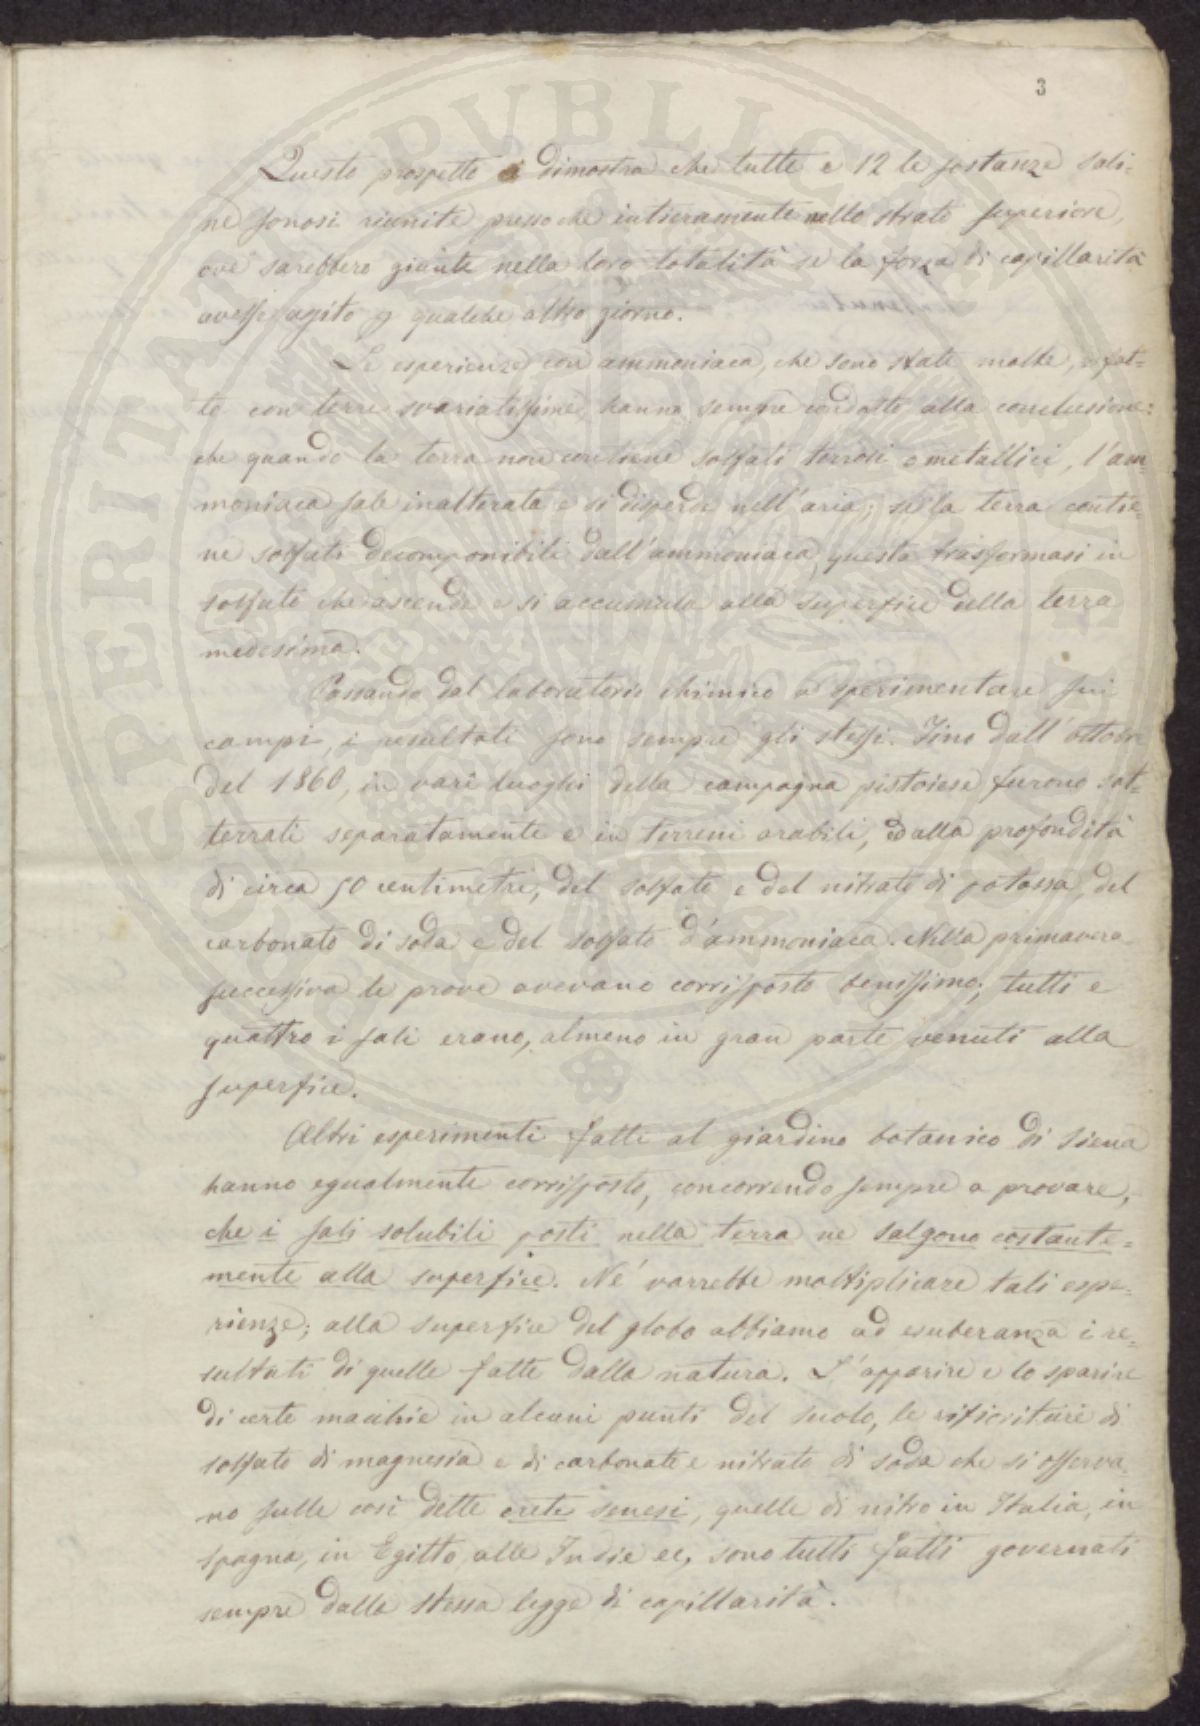 3
Questo prospetto dimostra che tutte e 12 le sostanze sali=
ne sonosi riunite pressoche intieramente nello strato superiore,
ove sarebbero giunte nella loro totalità se la forza di capillarità
avesse agito p qualche altro giorno.
Le esperienze con ammoniaca, che sono state molte, e fat=
te con terre svariatissime, hanno sempre condotto alla conclusione:
che quando la terra non contiene solfati terrosi o metallici, l'am=
moniaca sale inalterata e si disperde nell'aria; se la terra contie=
ne solfati decomponibili dall'ammoniaca, questa trasformasi in
solfato che ascende e si accumula alla superfice della terra
medesima.
Passando dal laboratorio chimico a sperimentare sui
campi, i resultati sono sempre gli stessi. Fino dall'ottobre
del 1860, in vari luoghi della campagna pistoiese furono sot=
terrati separatamente e in terreni arabili, e dalla profondità
di circa 50 centimetri, del solfato e del nitrato di potassa, del
carbonato di soda e del solfato d'ammoniaca. Nella primavera
successiva le prove avevano corrisposto benissimo; tutti e
quattro i sali erano, almeno in gran parte venuti alla
superfice.
Altri esperimenti fatti al giardino botanico di Siena
hanno egualmente corrisposto, concorrendo sempre a provare,
che i sali solubili posti nella terra ne salgono costante=
mente alla superfice. Né varrebbe moltiplicare tali espe=
rienze; alla superfice del globo abbiamo ad esuberanza i re=
sultati di quelle fatte dalla natura. L'apparire e lo sparire
di certe macchie in alcuni punti del suolo, le rifioriture di
solfato di magnesia e di carbonato e nitrato di soda che si osserva=
no sulle così dette crete senesi, quelle di nitro in Italia, in
Spagna, in Egitto, alle Indie ec, sono tutti fatti governati
sempre dalla stessa legge di capillarità.
SPERITATI PUBLICAE